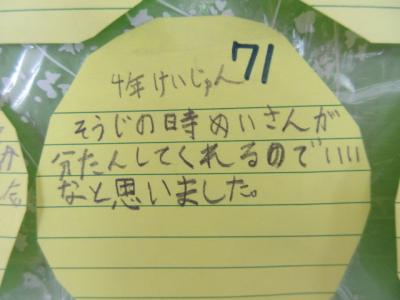 71
4年けいじゅん
そうじの時ぬいさんが
分たんしてくれるのでいい
なと思いました。